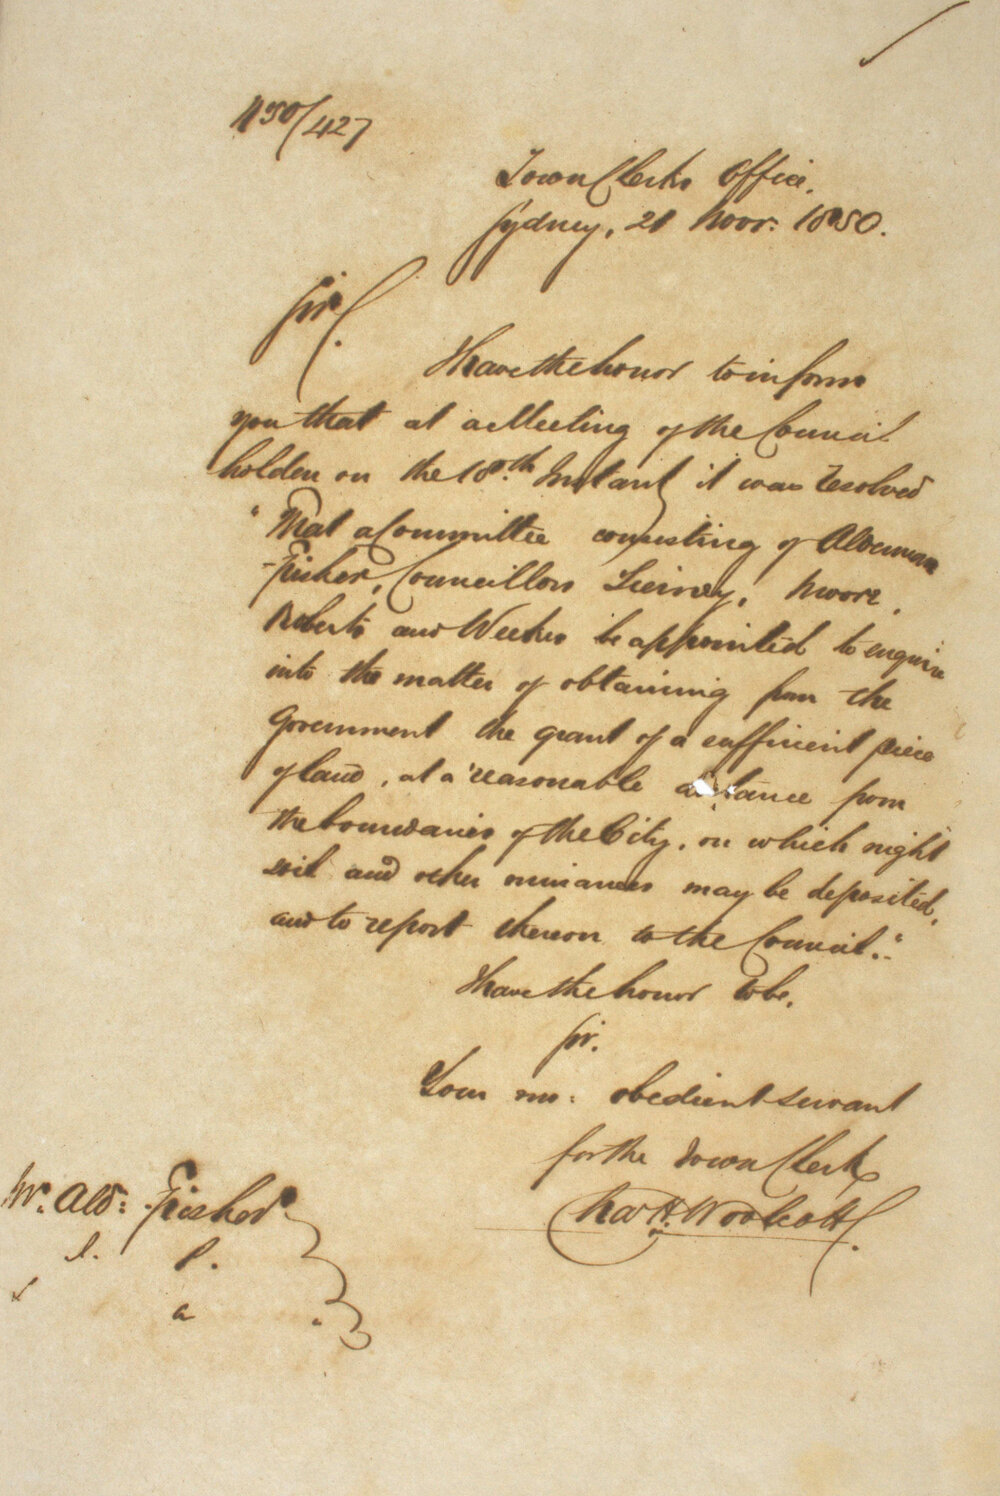 50/427
Town Clerks Office.
Sydney, 21 Novr. 1850.
Sir,
I have the honor to inform
you that at a Meeting of the Council
holden on the 18th. Instant it was resolved
"That a Committee consisting of Alderman
Fisher, Councillors Iredale, Moore,
Roberts and Weekes be appointed to enquire
into the matter of obtaining from the
Government the grant of a sufficient piece
of land, at a reasonable distance from
the boundaries of the City, on which night
soil and other nuisances may be deposited,
and to report thereon to the Council."
I have the honor to be.
Sir.
Your mo. obedient servant
for the Town Clerk
Chas H. Woolcott.
Mr. Ald: Fisher